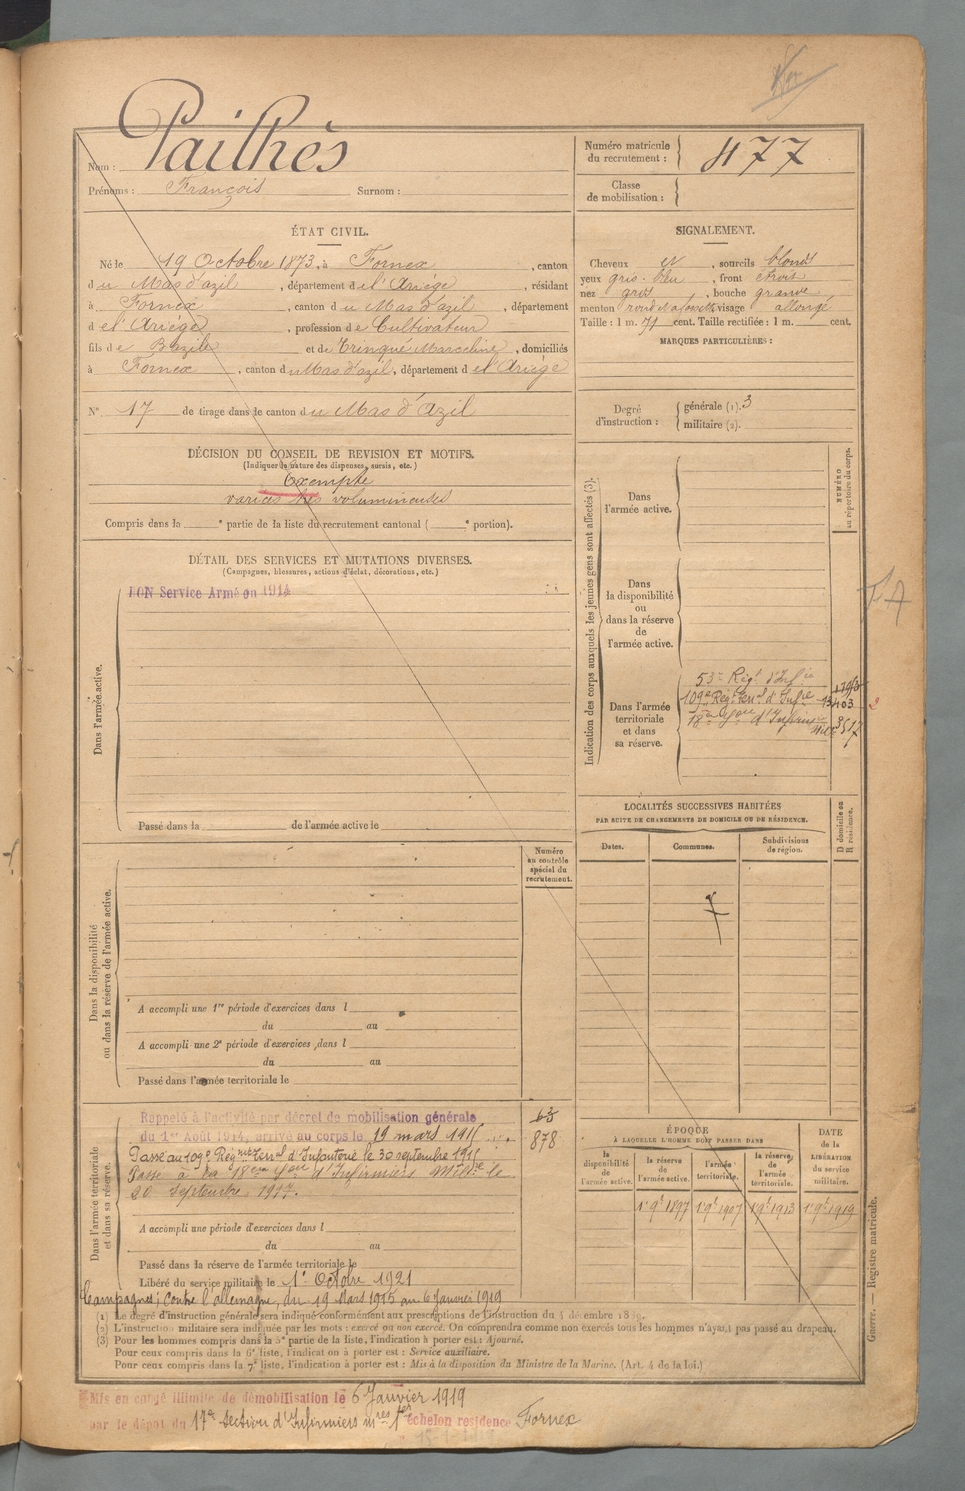 Nom : Pailhès
Prénoms : François Surnom :
Numéro matricule du recrutement : 477
Classe de mobilisation :
ÉTAT CIVIL.
Né le 19 Octobre 1873, à Fornex, canton
du Mas d'azil, département de l'Ariège, résidant
à Fornex, canton du Mas d'azil, département
de l'Ariège, profession de Cultivateur
fils de Bazile et de Tringué Marceline, domiciliés
à Fornex, canton du Mas d'azil, département de l'Ariège
N° 17 de tirage dans le canton du Mas d'Azil
SIGNALEMENT.
Cheveux et, sourcils blonds
yeux gris-bleu, front étroit
nez gros, bouche grande,
menton rond et à fossette visage allongé
Taille : 1 m. 71 cent. Taille rectifiée : 1 m. cent.
MARQUES PARTICULIÈRES :
Degré d'instruction : générale (1). 3
militaire (2).
DÉCISION DU CONSEIL DE REVISION ET MOTIFS.
(Indiquer la nature des dispenses, sursis, etc.)
Exempté
varices très volumineuses
Compris dans la e partie de la liste du recrutement cantonal ( e portion).
DÉTAIL DES SERVICES ET MUTATIONS DIVERSES.
(Campagnes, blessures, actions d'éclat, décorations, etc.)
Dans l'armée active.
BON Service Armé en 1914
Passé dans la de l'armée active le
Indication des corps auxquels les jeunes gens sont affectés (3).
NUMÉRO au répertoire du corps.
Dans l'armée active.
Dans la disponibilité ou dans la réserve de l'armée active.
Dans l'armée territoriale et dans sa réserve.
53e Régt d'Infie
109e Régt terral d'Infie 13403
18e Son d'Infirmiers Mres 3517
LOCALITÉS SUCCESSIVES HABITÉES
PAR SUITE DE CHANGEMENTS DE DOMICILE OU DE RÉSIDENCE.
D domicile ou R résidence.
Dates. Communes. Subdivisions de région.
Numéro au contrôle spécial du recrutement.
Dans la disponibilité ou dans la réserve de l'armée active.
A accompli une 1re période d'exercices dans l
du au
A accompli une 2e période d'exercices dans l
du au
Passé dans l'armée territoriale le
Dans l'armée territoriale et dans sa réserve.
Rappelé à l'activité par décret de mobilisation générale 63
du 1er Août 1914, arrivé au corps le 19 mars 1915 878
Passé au 109e Régiment terral d'Infanterie le 30 septembre 1915
Passé à la 18e Son d'Infirmiers Mres le
20 septembre 1917.
A accompli une période d'exercices dans l
du au
Passé dans la réserve de l'armée territoriale le
Libéré du service militaire le 1er Octobre 1921
Campagnes : contre l'allemagne, du 19 Mars 1915 au 6 Janvier 1919
ÉPOQUE
À LAQUELLE L'HOMME DOIT PASSER DANS
DATE de la LIBÉRATION du service militaire.
la disponibilité de l'armée active.
la réserve de l'armée active.
l'armée territoriale.
la réserve de l'armée territoriale.
1er 9bre 1897 1er 9bre 1907 1er 9bre 1913 1er 9bre 1919
Guerre. — Registre matricule.
(1) Le degré d'instruction générale sera indiqué conformément aux prescriptions de l'instruction du 4 décembre 1889.
(2) L'instruction militaire sera indiquée par les mots : exercé ou non exercé. On comprendra comme non exercés tous les hommes n'ayant pas passé au drapeau.
(3) Pour les hommes compris dans la 5e partie de la liste, l'indication à porter est : Ajourné.
Pour ceux compris dans la 6e liste, l'indication à porter est : Service auxiliaire.
Pour ceux compris dans la 7e liste, l'indication à porter est : Mis à la disposition du Ministre de la Marine. (Art. 4 de la loi.)
Mis en congé illimité de démobilisation le 6 Janvier 1919
par le dépôt du 17e Section d'Infirmiers mres 1er échelon residence Fornex